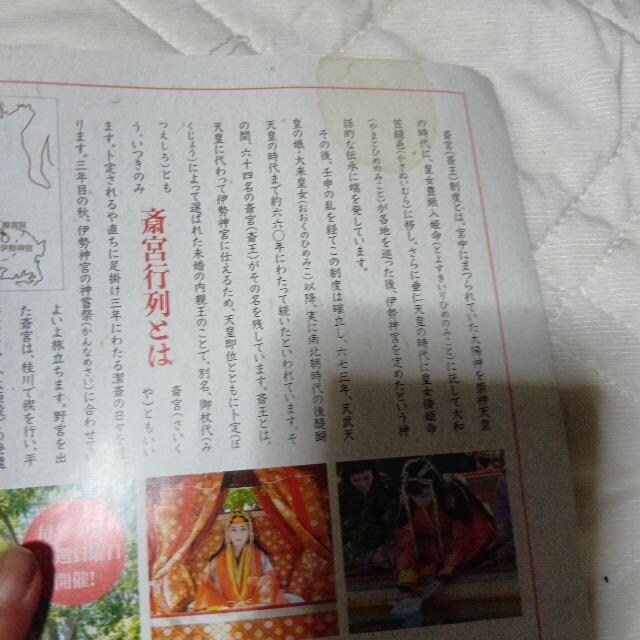 斎宮行列とは
斎宮(斎王)制度とは、宮中にまつられていた大神を崇神天皇
の時代に、皇女豊鍬入姫命(とよすきいりひめのみこと)に託して大和
笠縫邑(かさぬいむら)に移し、さらに垂仁天皇の時代に皇女倭姫命
(やまとひめのみこと)が各地を巡った後、伊勢神宮を定めたという神
話的な伝承に端を発しています。
その後、壬申の乱を経てこの制度は確立し、六七三年、天武天
皇の娘・大来皇女(おおくのひめみこ)以降、実に南北朝時代の後醍醐
天皇の時代まで約六六〇年にわたって続いたといわれています。そ
の間、六十四名の斎宮(斎王)がその名を残しています。斎王とは、
天皇に代わって伊勢神宮に仕えるため、天皇即位とともに卜定(ぼ
くじょう)によって選ばれた未婚の内親王のことで、別名、御杖代(み
つえしろ)とも
斎宮(さいく
う、いつきのみ
や)ともいい
ます。卜定されるや直ちに足掛け三年にわたる潔斎の日々を
ります。三年目の秋、伊勢神宮の神嘗祭(かんなめさい)に合わせて
よいよ旅立ちます。野宮を出
た斎宮は、桂川で禊を行い、平
開催!